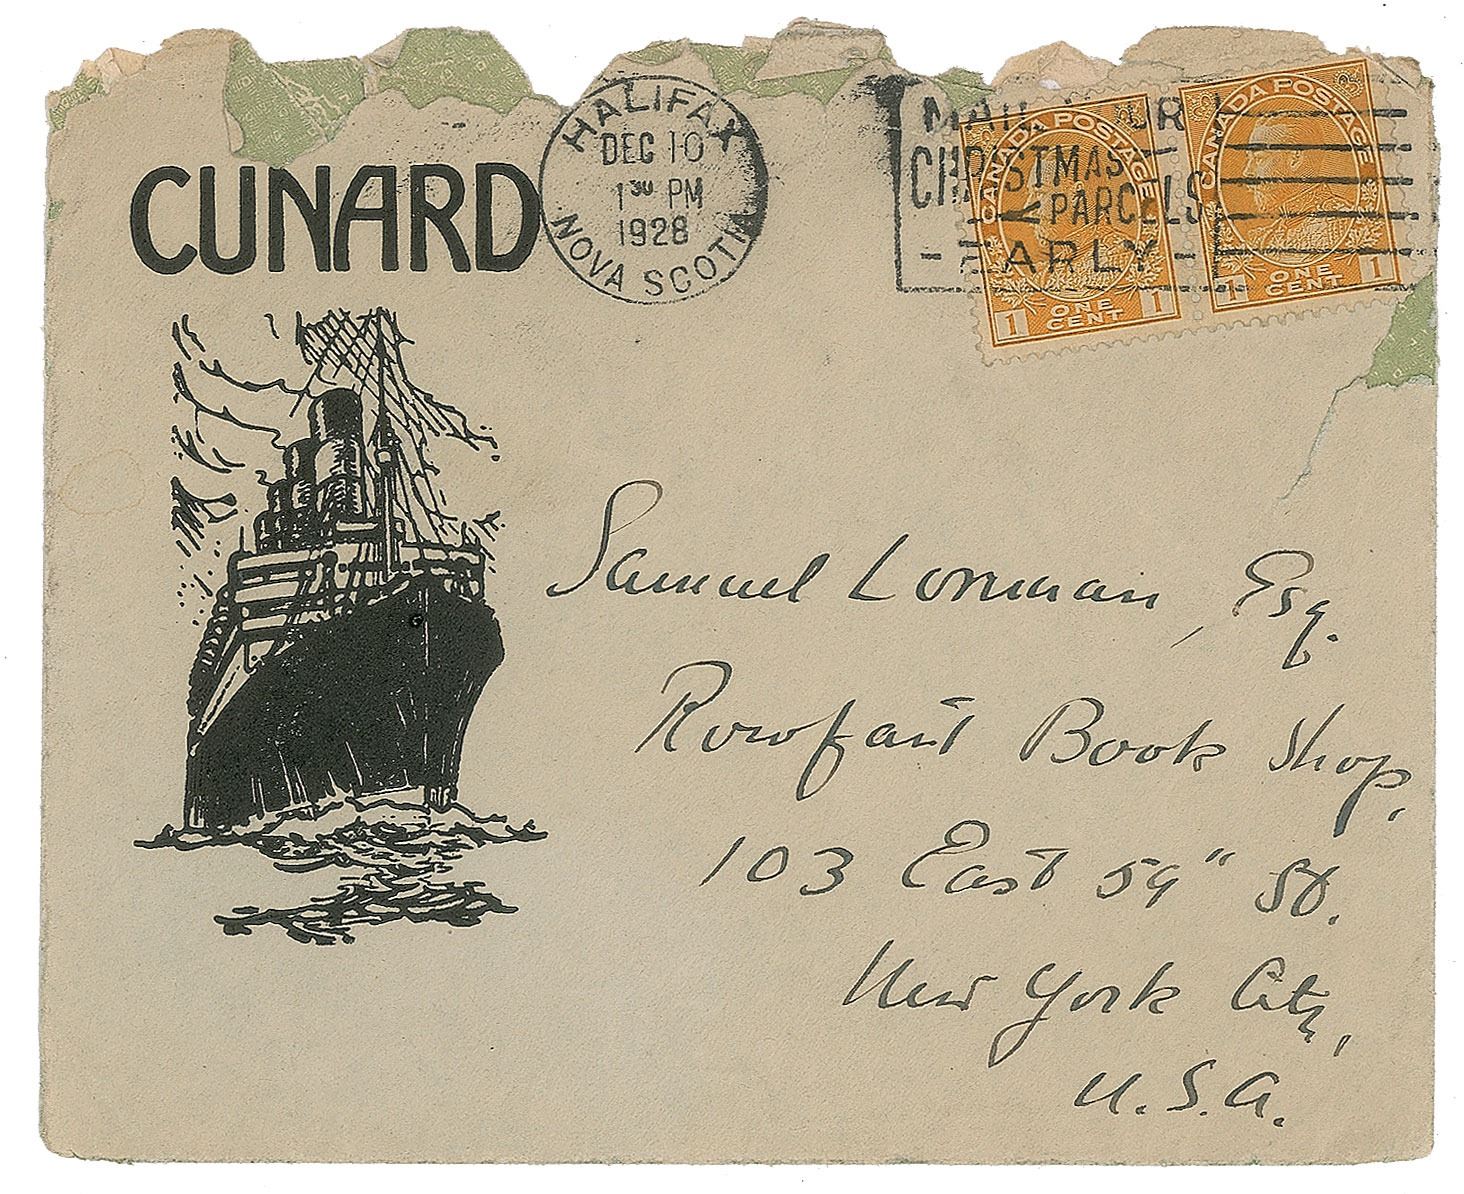 CUNARD
HALIFAX
DEC 10
1 30 PM
1928
NOVA SCOTIA
MAIL YOUR
CHRISTMAS
PARCELS
- EARLY -
CANADA POSTAGE
1 ONE CENT 1
CANADA POSTAGE
1 ONE CENT 1
Samuel Lorman, Esq.
Rowfant Book Shop,
103 East 59" St.
New York City,
U.S.A.